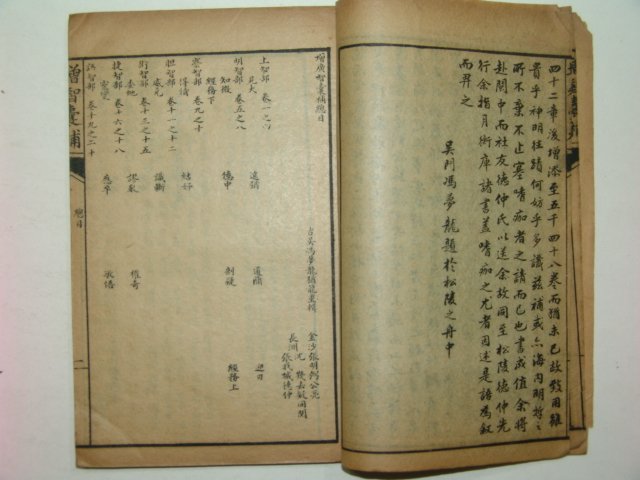 四十二章後增添至五千四十八卷而猶未已故致用雖
貴乎神明往蹟何妨乎多識茲補或亦海內明哲之
所不棄不止塞嗜痂者之請而已也書成值余將
赴閩中而社友德仲氏以送余故同至松陵德仲先
行余指月衡庫諸書蓋嗜痂之尤者因述是語為敘
而畀之
吳門馮夢龍題於松陵之舟中
增廣智囊補總目
古吳馮夢龍猶龍重輯
金沙張明弼公亮
長洲沈幾去疑同閱
張我城德仲
上智部 卷一之四
見大 遠猶 通簡 迎刃
明智部 卷五之八
知微 億中 剖疑 經務上
經務下
察智部 卷九之十
得情 詰奸
膽智部 卷十一之十二
威克 識斷
術智部 卷十三之十五
委蛇 謬數 權奇
捷智部 卷十六之十八
靈變 應卒 敏悟
語智部 卷十九之二十
增智囊補
總目
二